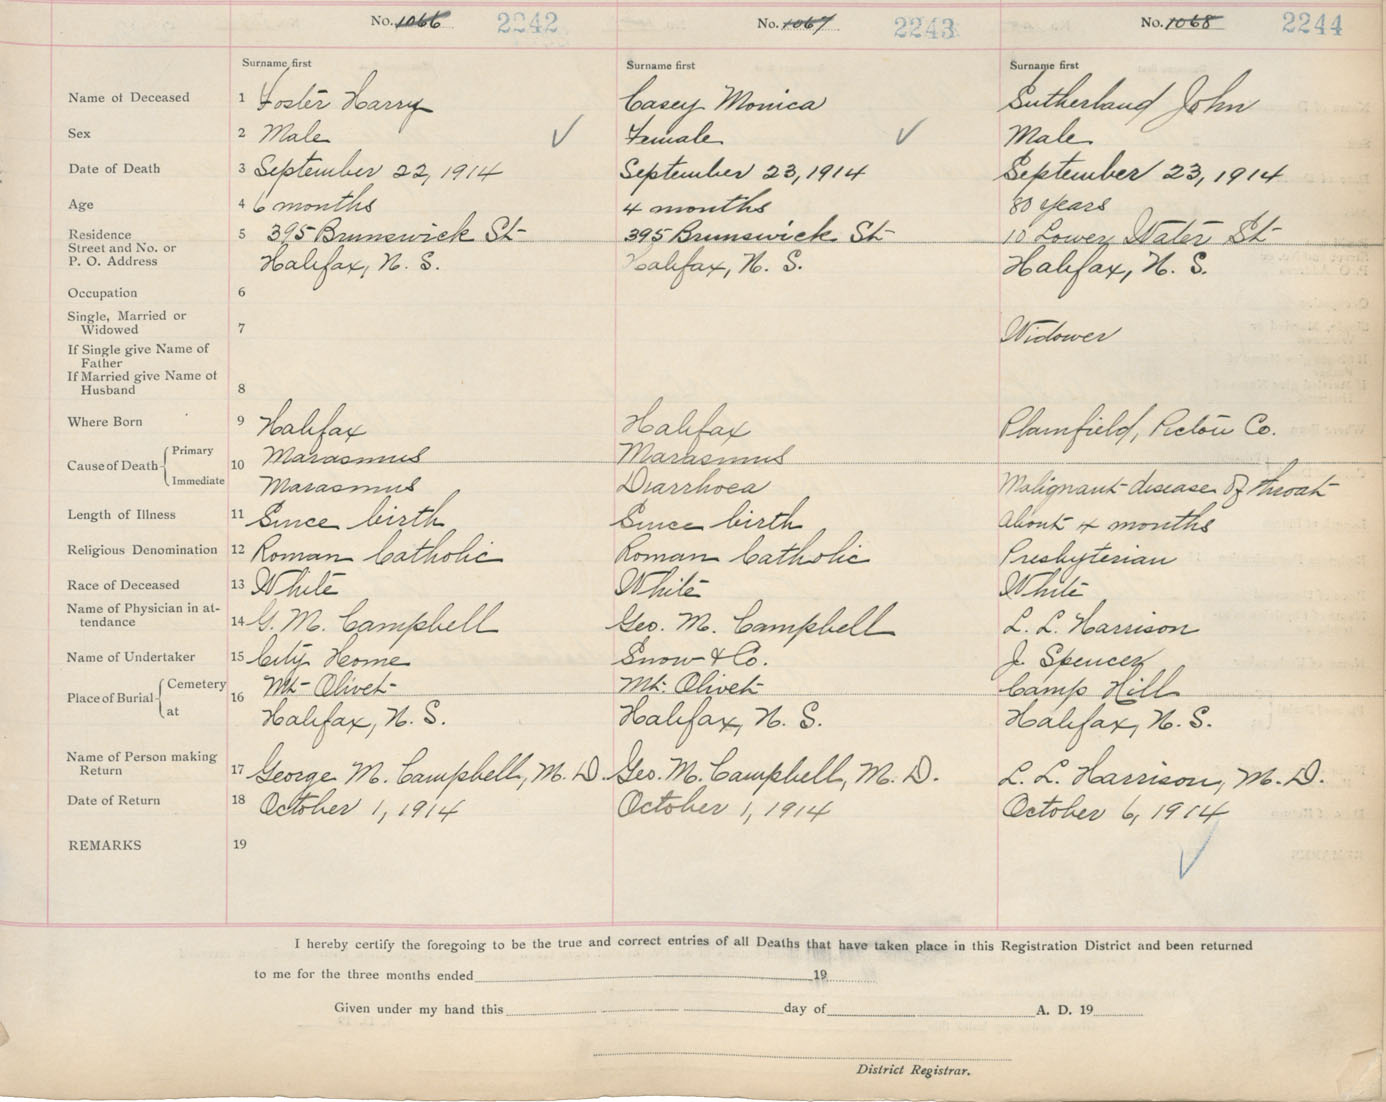 No. 1066 2242 No. 1067 2243 No. 1068 2244
Surname first Surname first Surname first
Name of Deceased 1 Foster Harry Casey Monica Sutherland John
Sex 2 Male Female Male
Date of Death 3 September 22, 1914 September 23, 1914 September 23, 1914
Age 4 6 months 4 months 80 years
Residence 5 395 Brunswick St 395 Brunswick St 10 Lower Water St
Street and No. or
P. O. Address Halifax, N. S. Halifax, N. S. Halifax, N. S.
Occupation 6
Single, Married or
Widowed 7 Widower
If Single give Name of
Father
If Married give Name of
Husband 8
Where Born 9 Halifax Halifax Plainfield, Pictou Co.
Cause of Death 10 Primary Marasmus Marasmus
Immediate Marasmus Diarrhoea Malignant disease of throat
Length of Illness 11 Since birth Since birth about 4 months
Religious Denomination 12 Roman Catholic Roman Catholic Presbyterian
Race of Deceased 13 White White White
Name of Physician in at-
tendance 14 G. M. Campbell Geo. M. Campbell L. L. Harrison
Name of Undertaker 15 City Home Snow & Co. J Spencer
Place of Burial 16 Cemetery Mt Olivet Mt. Olivet Camp Hill
at Halifax, N. S. Halifax, N. S. Halifax, N. S.
Name of Person making
Return 17 George M. Campbell, M. D. Geo. M. Campbell, M. D. L. L. Harrison, M. D.
Date of Return 18 October 1, 1914 October 1, 1914 October 6, 1914
REMARKS 19
I hereby certify the foregoing to be the true and correct entries of all Deaths that have taken place in this Registration District and been returned
to me for the three months ended 19
Given under my hand this day of A. D. 19
District Registrar.